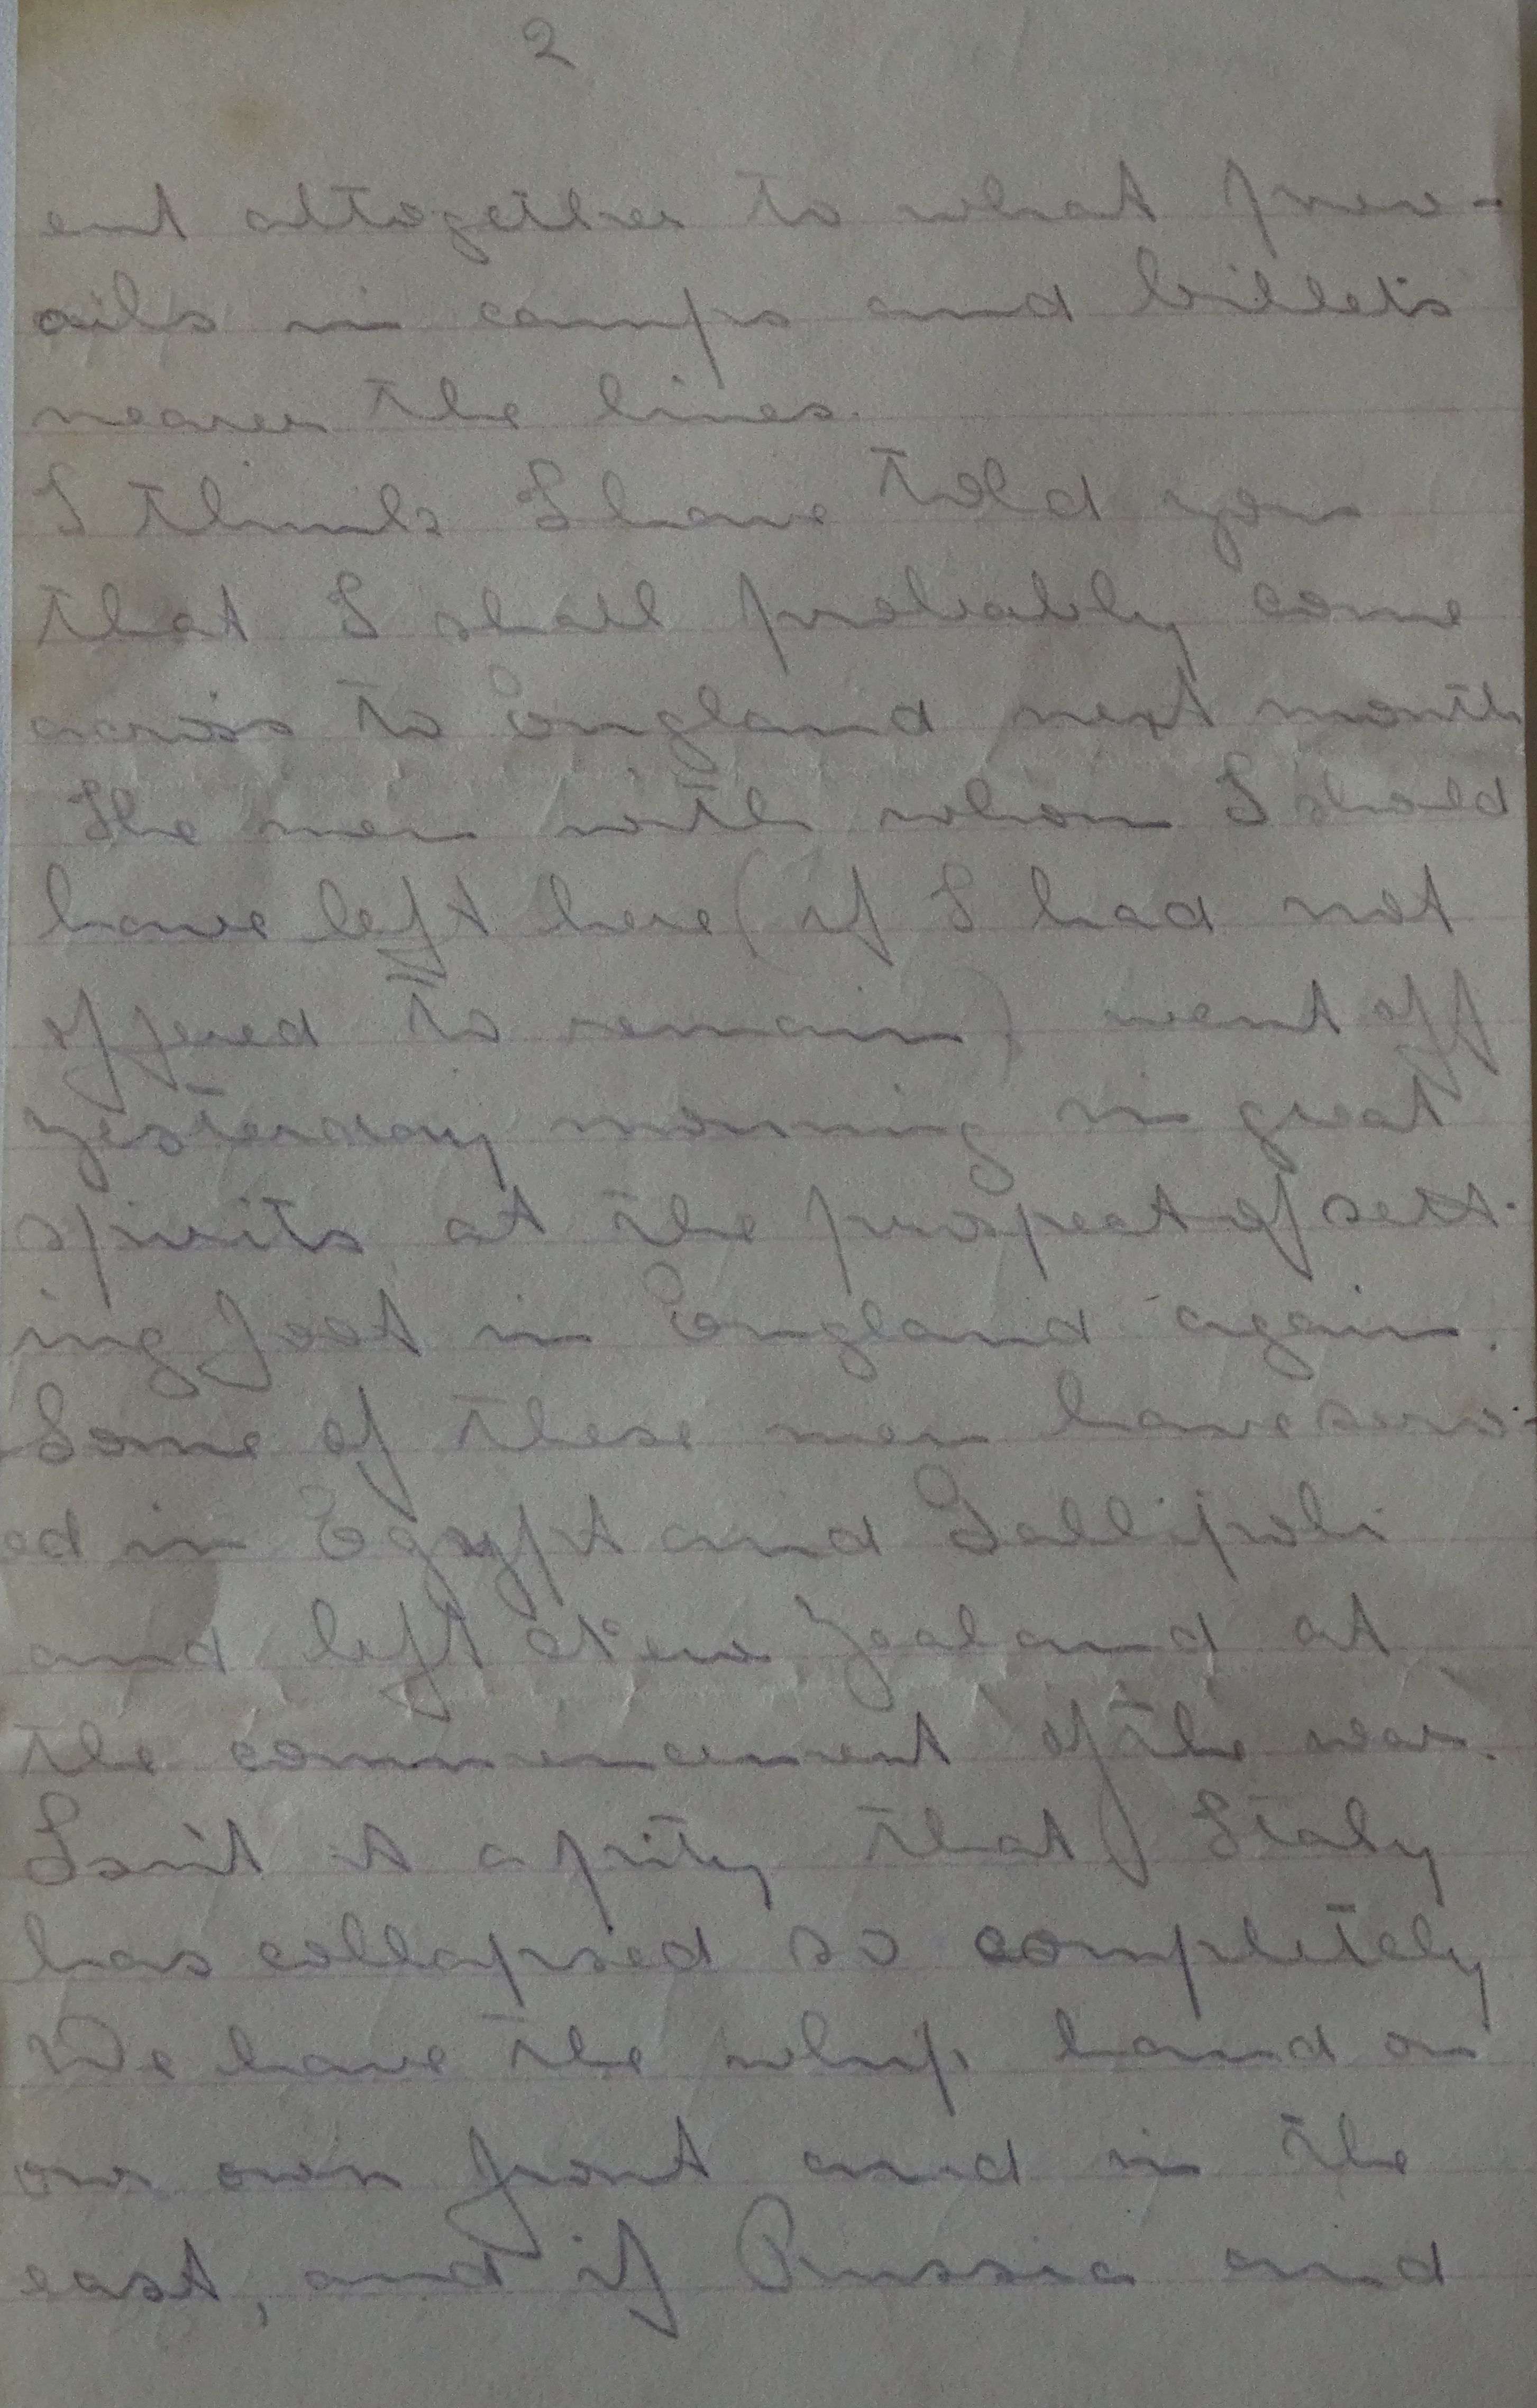 2
ent altogether to what prev-
ails in camps and billets
nearer the lines.
I think I have told you
that I shall probably come
across to England next month
The men with whom I should
have left here (if I had not
offered to remain) went off
yesterday morning in great
spirits at the prospect of sett-
ing foot in England again.
Some of these men have serv-
ed in Egypt and Gallipoli
and left New Zealand at
the commencement of the war.
Isn't it a pity that Italy
has collapsed so completely
We have the whip hand on
our own front and in the
east, and if Russia and